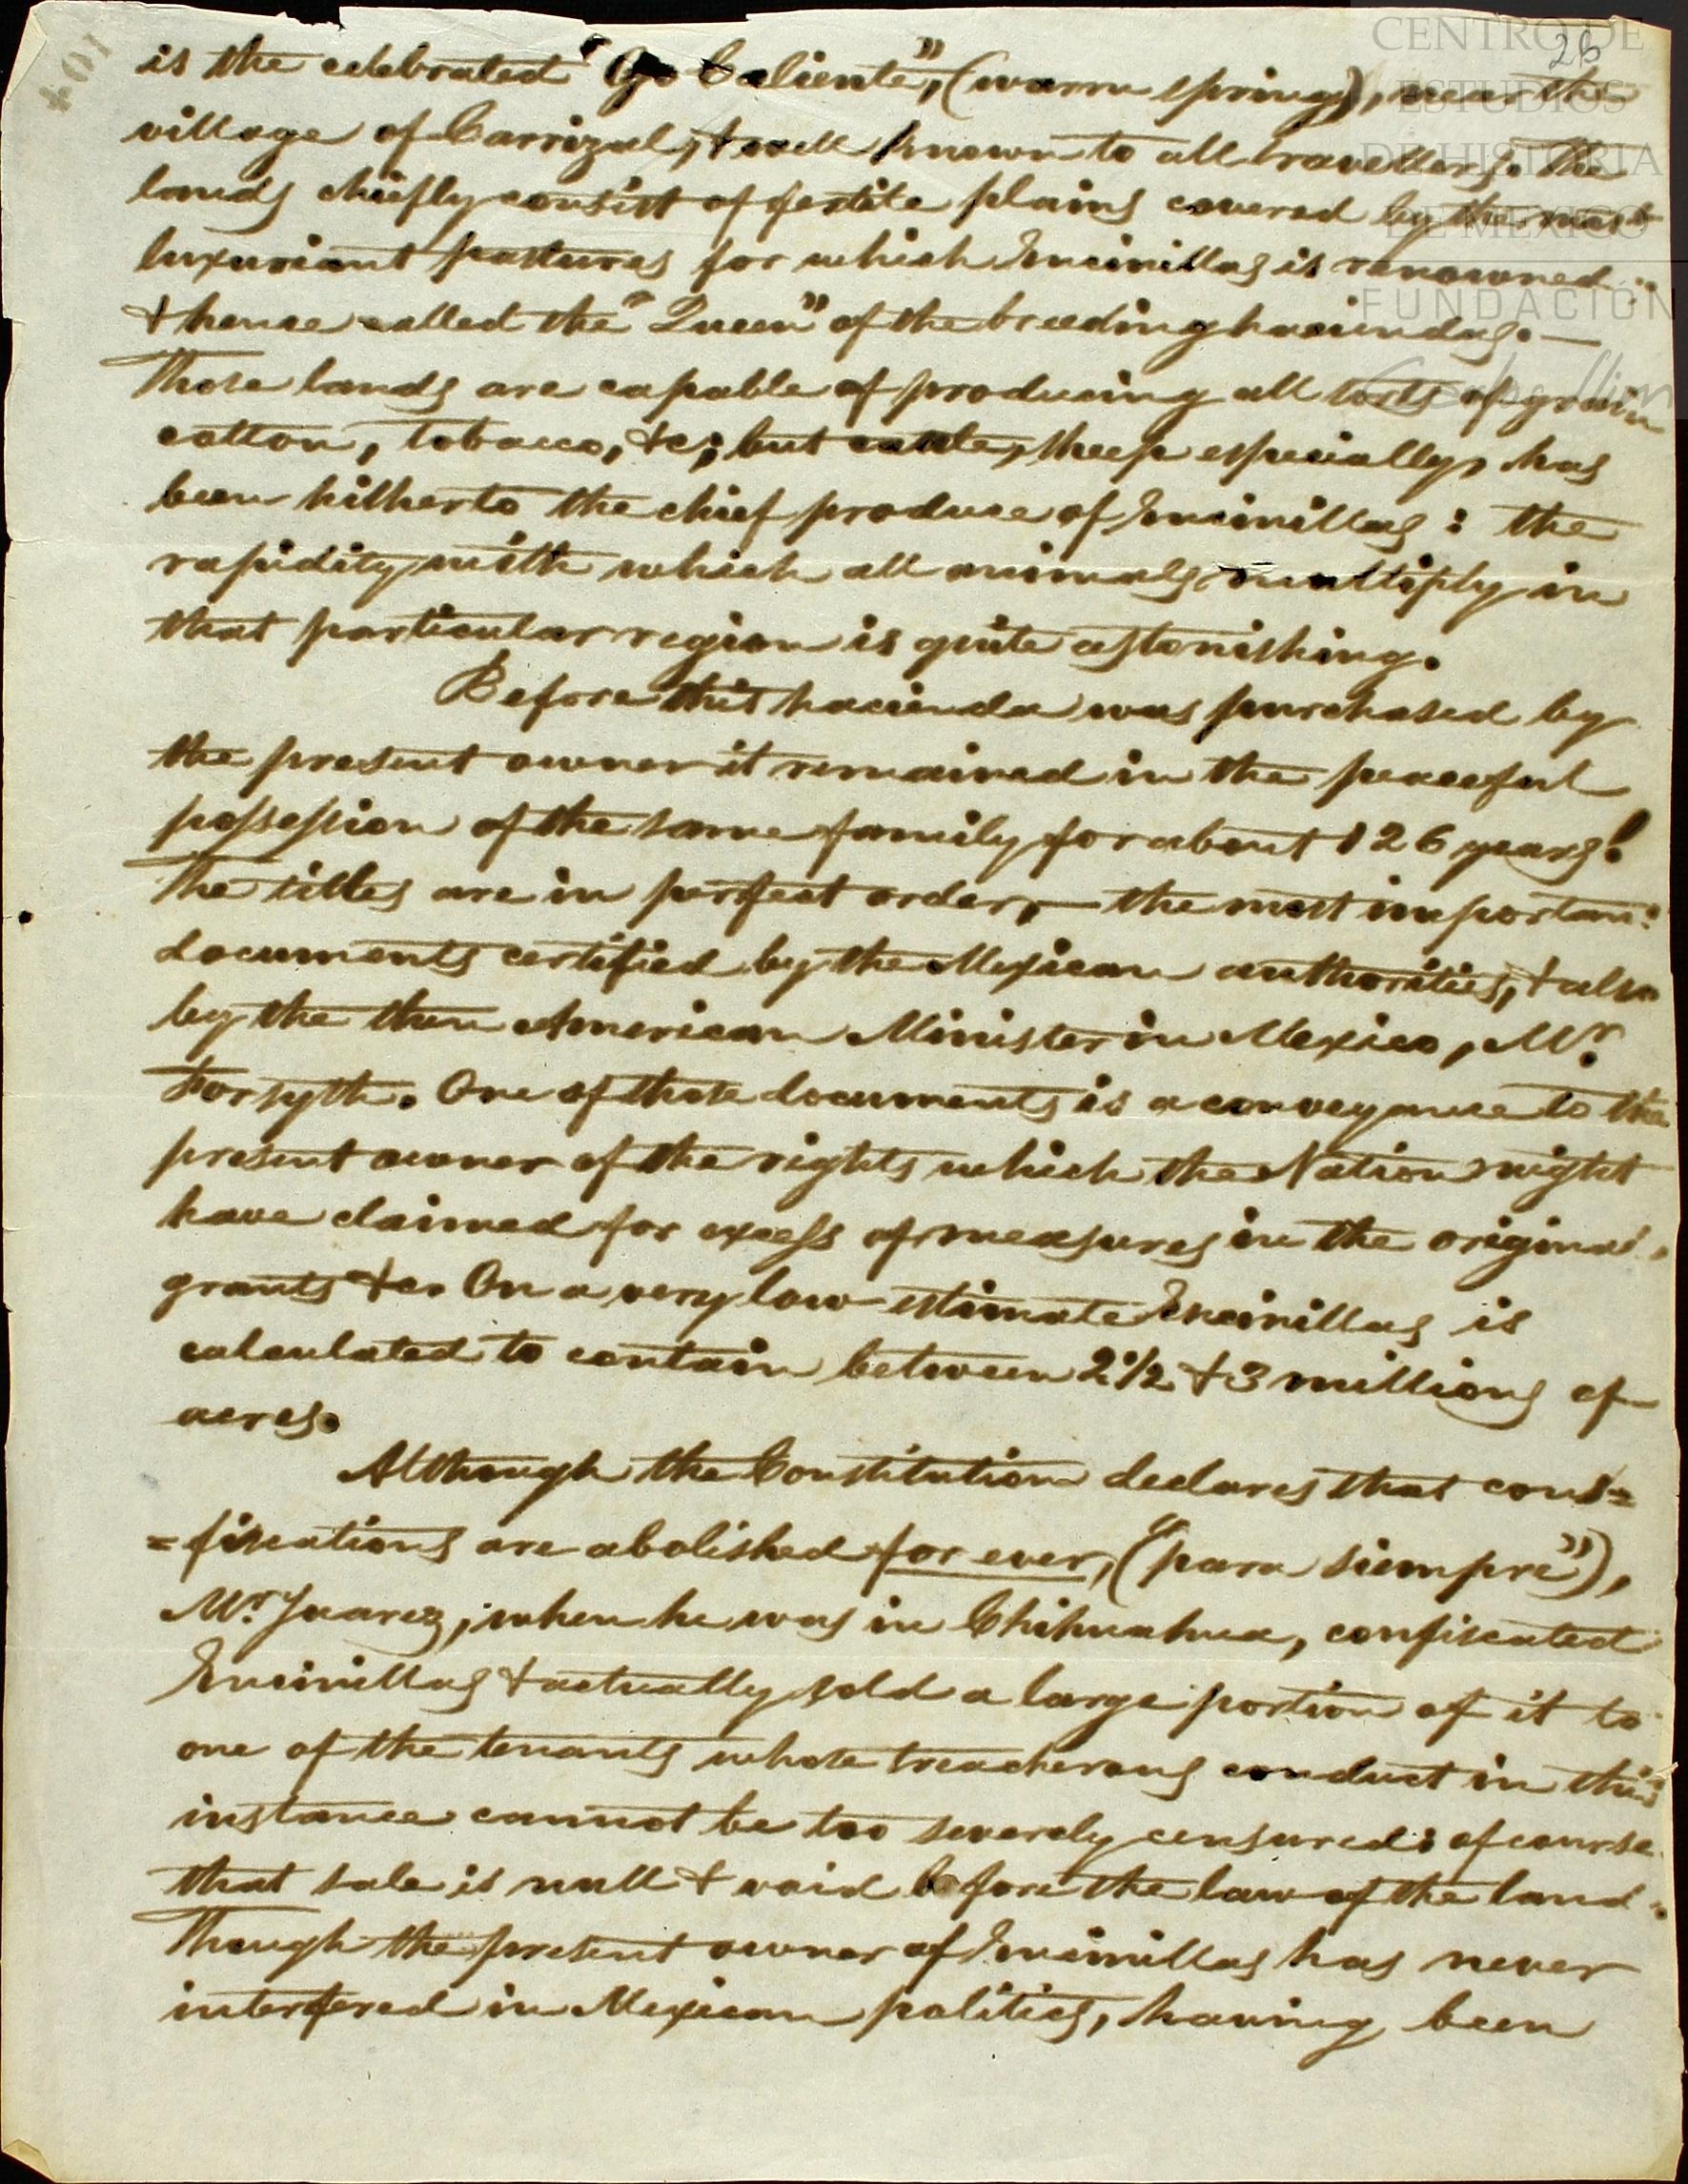 26
104
CENTRO DE
ESTUDIOS
DE HISTORIA
DE MEXICO
FUNDACIÓN
is the celebrated "Ojo Caliente", (warm spring), near the
village of Carrizal, & well known to all travellers. The
lands chiefly consist of fertile plains covered by the most
luxuriant pastures for which Encinillas is renowned
& hence called the "Queen" of the breeding haciendas. —
Those lands are capable of producing all sorts of grain
cotton, tobacco, &c; but cattle, sheep especially, has
been hitherto the chief produce of Encinillas: the
rapidity with which all animals multiply in
that particular region is quite astonishing.
Before this hacienda was purchased by
the present owner it remained in the peaceful
possession of the same family for about 126 years!
The titles are in perfect order, — the most important
documents certified by the Mexican authorities, & also
by the then American Minister in Mexico, Mr.
Forsyth. One of those documents is a conveyance to the
present owner of the rights which the Nation might
have claimed for excess of measures in the original
grants &c. On a very low estimate Encinillas is
calculated to contain between 2 1/2 & 3 millions of
acres.
Although the Constitution declares that con=
=fiscations are abolished for ever, ("para siempre"),
Mr. Juarez, when he was in Chihuahua, confiscated
Encinillas & actually sold a large portion of it to
one of the tenants whose treacherous conduct in this
instance cannot be too severely censured: of course
that sale is null & void before the law of the land.
Though the present owner of Encinillas has never
interfered in Mexican politics, having been